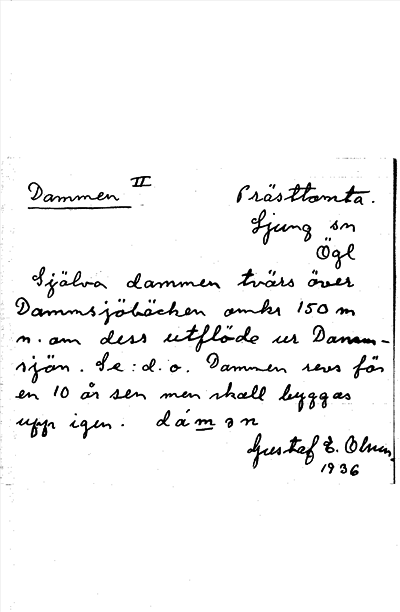 Dammen II
Prästtomta.
Ljung sn
Ögl
Själva dammen tvärs över
Dammsjöbäcken omkr 150 m
n. om dess utflöde ur Damm-
sjön. Se: d. o. Dammen revs för
en 10 år sen men skall byggas
upp igen. dámən
Gustaf E. Olsson.
1936